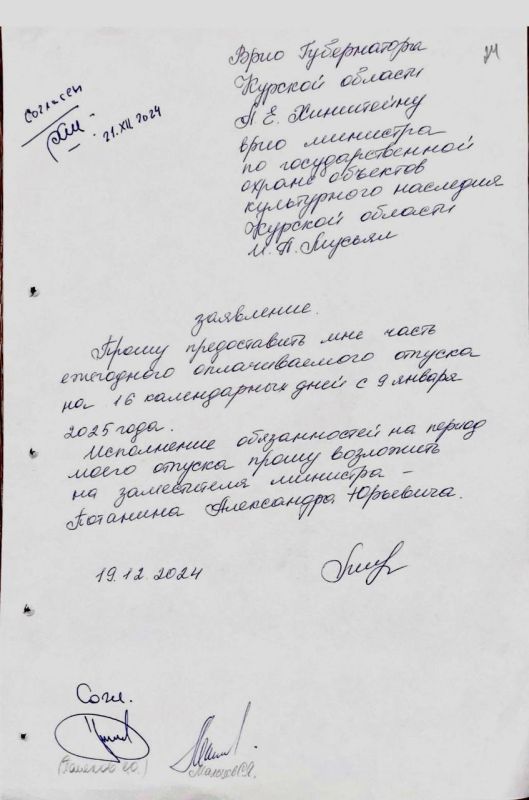 Согласен
21.XII.2024
24
Врио Губернатора
Курской области
А. Е. Хинштейну
врио министра
по государственной
охране объектов
культурного наследия
Курской области
И. П. Мусьял
заявление.
Прошу предоставить мне часть
ежегодного оплачиваемого отпуска
на 16 календарных дней с 9 января
2025 года.
Исполнение обязанностей на период
моего отпуска прошу возложить
на заместителя министра –
Потанина Александра Юрьевича.
19.12.2024
Согл.